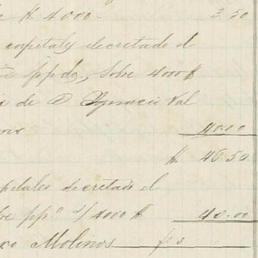 de $ 4000-- 3.50
capitales decretado el
ppdo, sobre 4000 $
de D. Ignacio Val
40.00
$ 46.50
capitales decretado el
ppº s/4000 $ 40.00
co Molinos